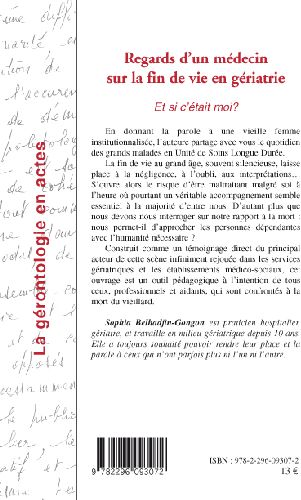 Regards d'un médecin
sur la fin de vie en gériatrie
Et si c'était moi?
En donnant la parole à une vieille femme
institutionnalisée, l'auteure partage avec vous le quotidien
des grands malades en Unité de Soins Longue Durée.
La fin de vie au grand âge, souvent silencieuse, laisse
place à la négligence, à l'oubli, aux interprétations...
S'ouvre alors le risque d'être maltraitant malgré soi à
l'heure où pourtant un véritable accompagnement semble
essentiel à la majorité d'entre nous. D'autant plus que
nous devons nous interroger sur notre rapport à la mort :
nous permet-il d'approcher les personnes dépendantes
avec l'humanité nécessaire ?
Construit comme un témoignage direct du principal
acteur de cette scène infiniment rejouée dans les services
gériatriques et les établissements médico-sociaux, cet
ouvrage est un outil pédagogique à l'intention de tous
ceux, professionnels et aidants, qui sont confrontés à la
mort du vieillard.
est praticien hospitalier,
gériatre, et travaille en milieu gériatrique depuis 10 ans.
Elle a toujours souhaité pouvoir rendre leur place et la
parole à ceux qui n'ont parfois plus ni l'un ni l'autre.
La gérontologie en actes
9 782296 093072
ISBN : 978-2-296-09307-2
13 €